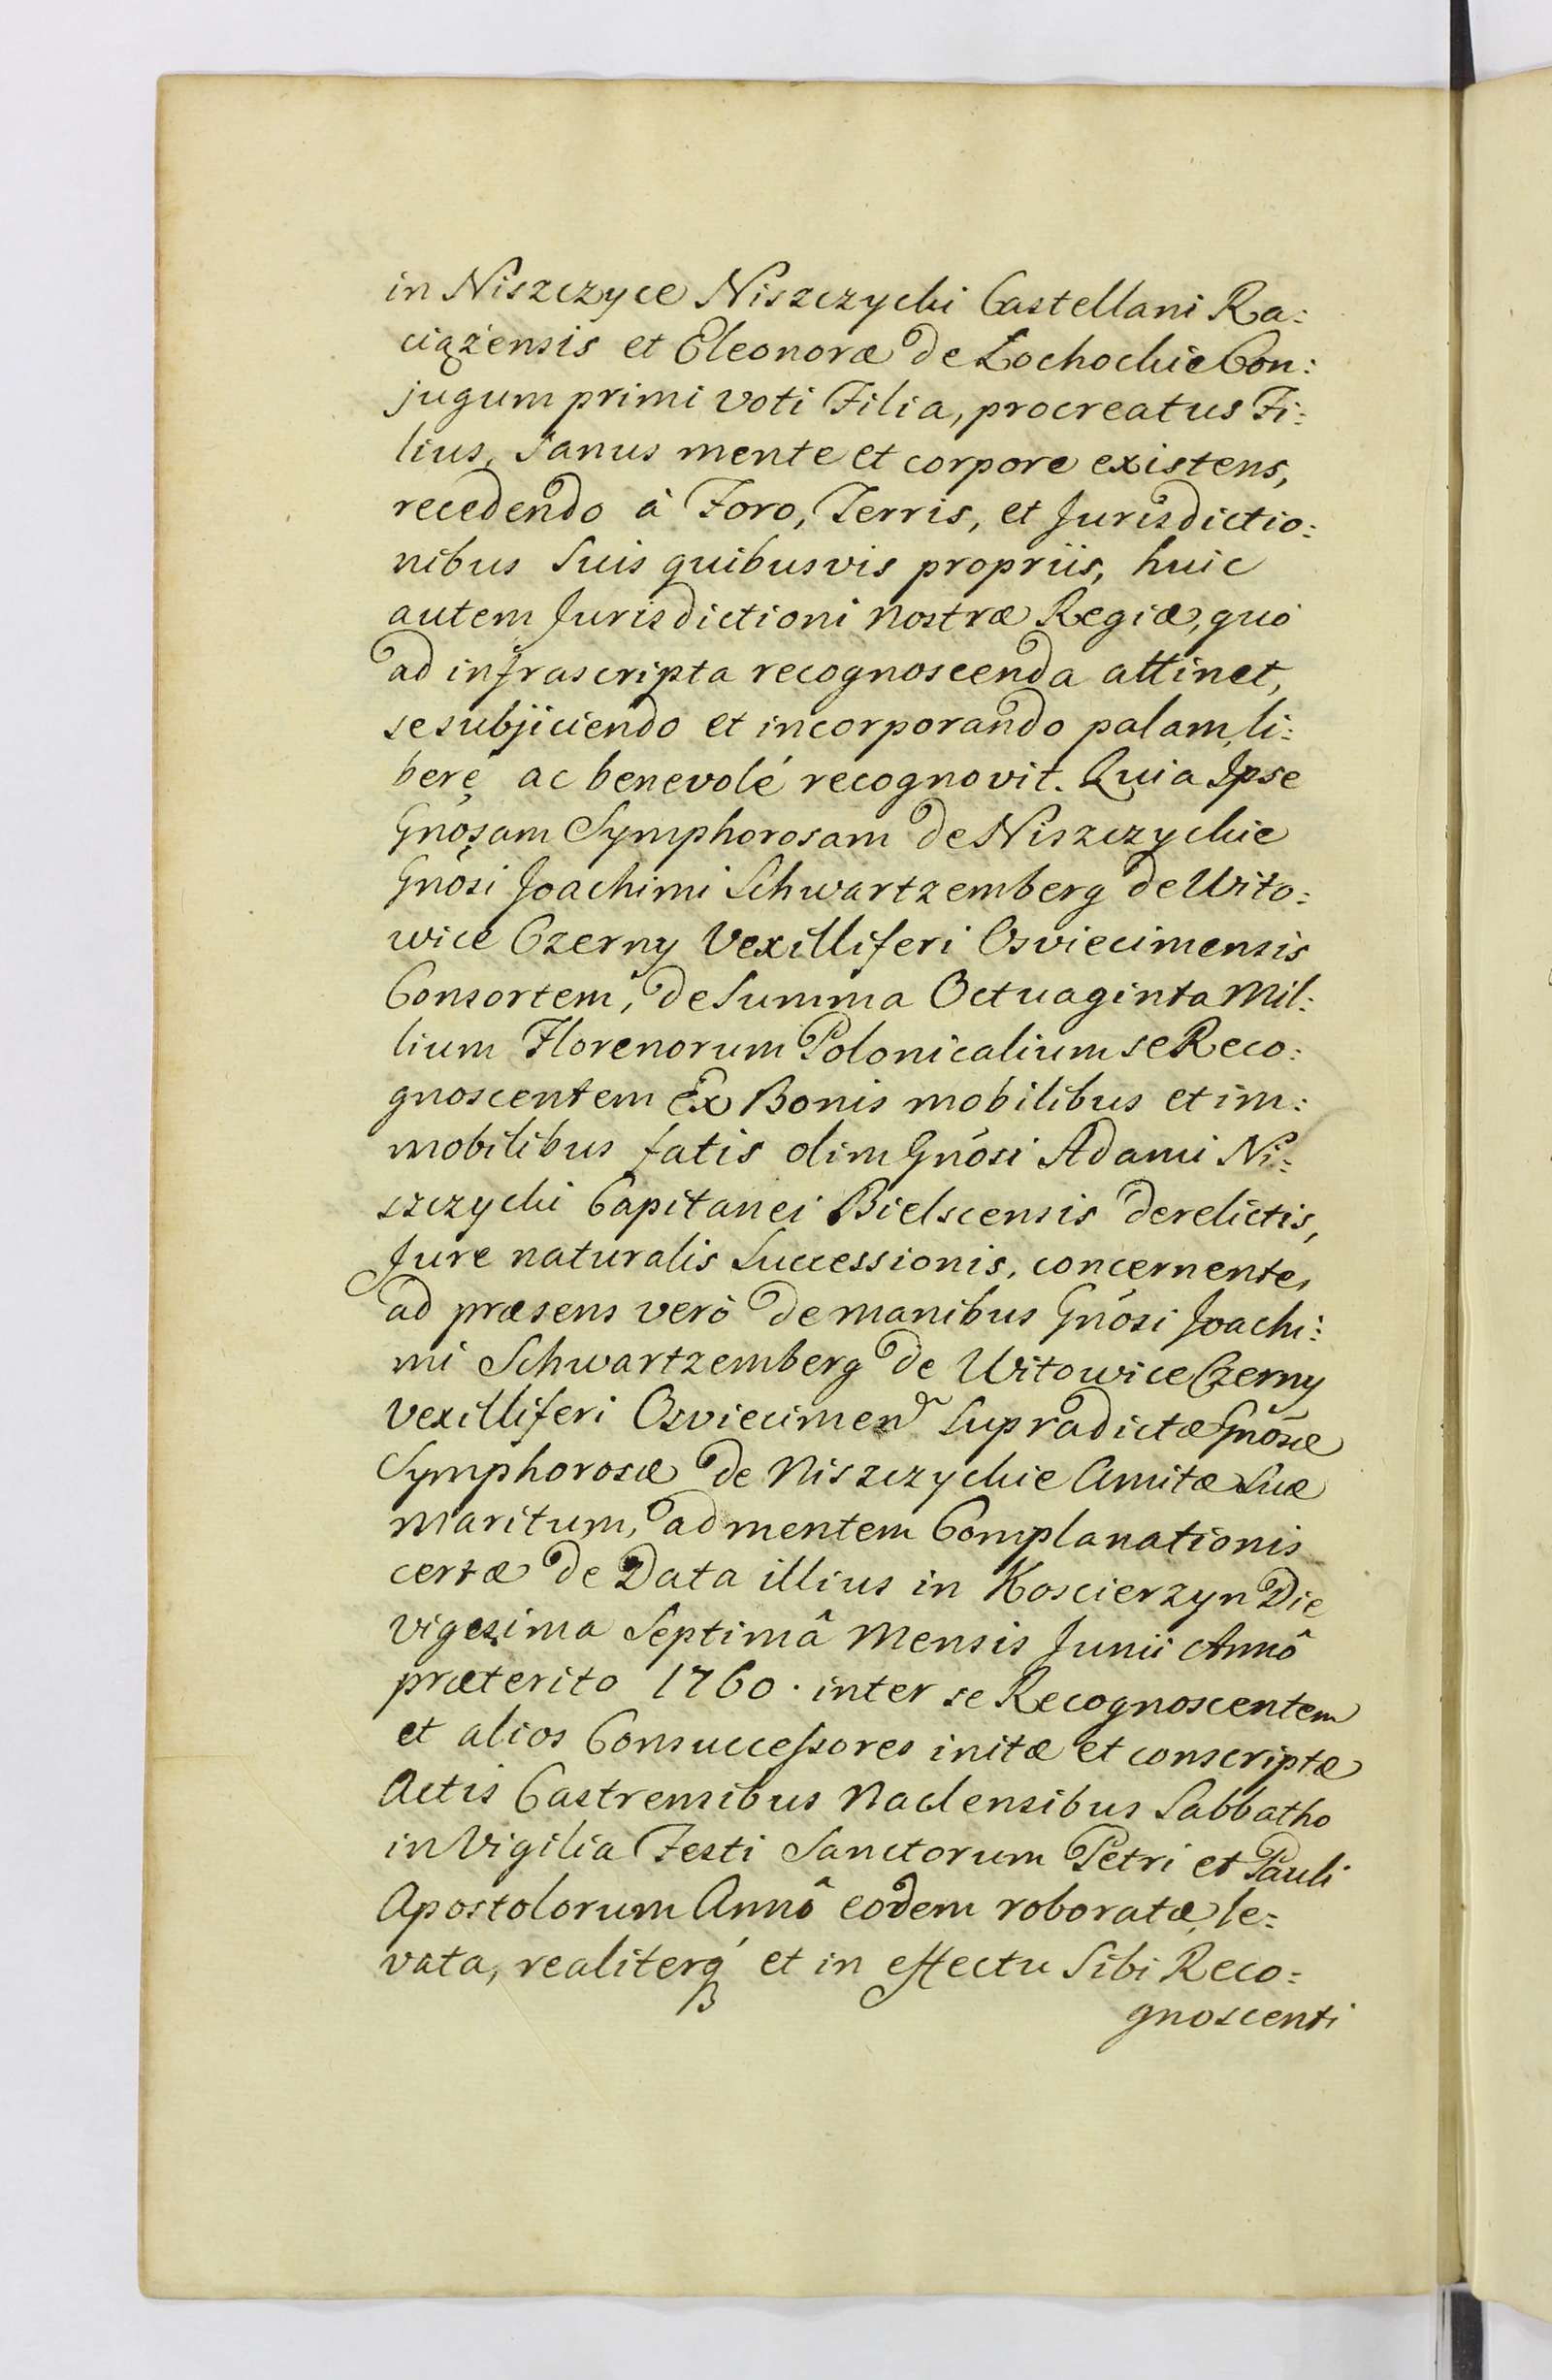 in Niszczyce Niszczycki Castellani Ra:
ciążensis et Eleonoræ de Łochockie Con:
jugum primi voti Filia, procreatus Fi:
lius, sanus mente et corpore existens,
recedendo à Foro, Terris, et Jurisdictio:
nibus Suis quibusvis propriis, huic
autem Jurisdictioni nostræ Regiæ, quó
ad infrascripta recognoscenda attinet,
se subjiciendo et incorporando palam, li:
berę ac benevolé recognovit. Quia Ipse
Gnosam Symphorosam de Niszczyckie
Gnosi Joachimi Schwartzemberg de Wito:
wice Czerny Vexilliferi Osviecimensis
Consortem, de Summa Octuaginta Mil:
lium Florenorum Polonicalium se Reco:
gnoscentem Ex Bonis mobilibus et im:
mobilibus fatis olim Gnósi Adami Ni:
szczycki Capitanei Bielscensis derelictis,
Jure naturalis Successionis, concernente,
ad præsens verò de manibus Gnósi Joachi:
mi Schwartzemberg de Witowice Czerny
Vexilliferi Osviecimen Supradictæ Gnósæ
Symphorosæ de Niszczyckie Amitæ Suæ
Maritum, ad mentem Complanationis
certæ de Data illius in Koscierzyn Die
vigesima Septimâ Mensis Junii Annô
præterito 1760. inter se Recognoscentem
et alios Consuccessores initæ et conscriptæ
Actis Castrensibus Naclensibus Sabbatho
in Vigilia Festi Sanctorum Petri et Pauli
Apostolorum Annô eodem roboratæ, le:
vata, realiterq́ et in effectu Sibi Reco:
gnoscenti